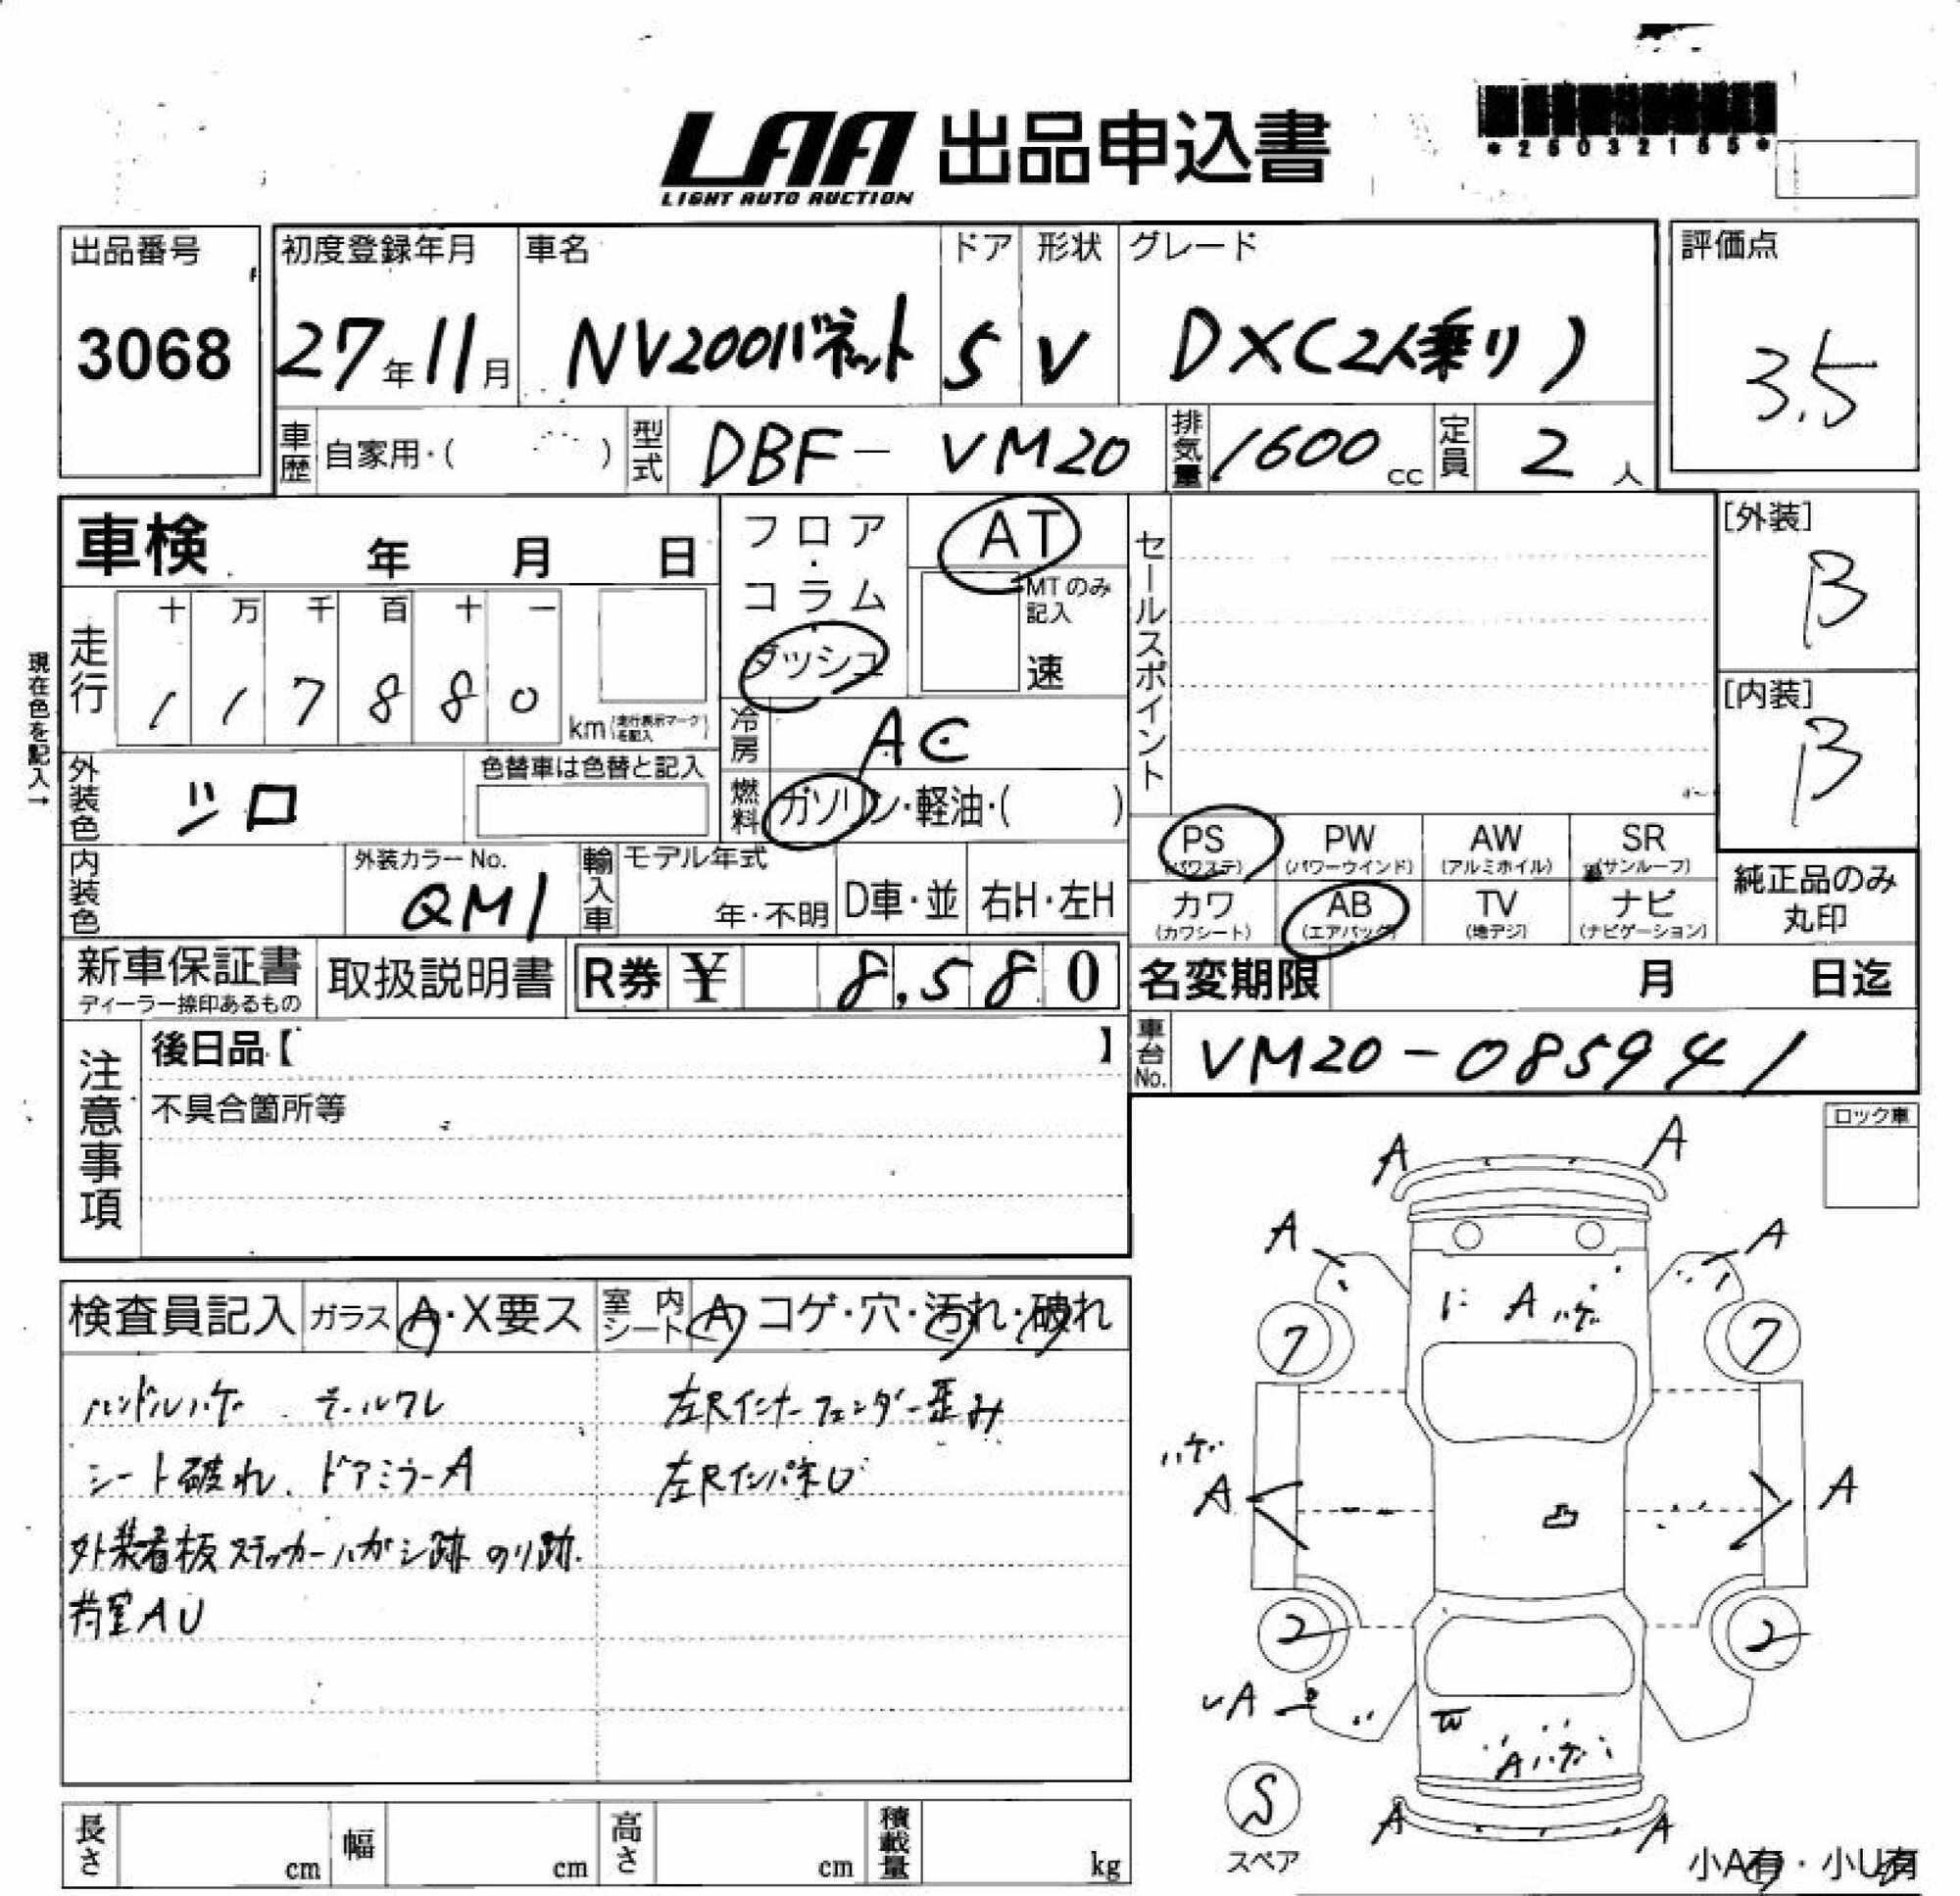 LAA 出品申込書
LIGHT AUTO AUCTION
*25032155*
出品番号
3068
初度登録年月
27年11月
車名
NV200バネット
ドア
5
形状
V
グレード
DX(2人乗り)
評価点
3.5
車歴
自家用・( )
型式
DBF-VM20
排気量
1600cc
定員
2人
車検 年 月 日
フロア・コラム・ダッシュ
AT
MTのみ記入
速
セールスポイント
[外装]
B
[内装]
B
現在色を記入→
走行
十 万 千 百 十 一
1 1 7 8 8 0
km(走行表示マークを記入)
冷房
AC
外装色
シロ
色替車は色替と記入
燃料
ガソリン・軽油・( )
PS (パワステ)
PW (パワーウインド)
AW (アルミホイル)
SR (サンルーフ)
カワ (カワシート)
AB (エアバック)
TV (地デジ)
ナビ (ナビゲーション)
純正品のみ
丸印
内装色
外装カラーNo.
QM1
輸入車
モデル年式
年・不明
D車・並
右H・左H
新車保証書
ディーラー捺印あるもの
取扱説明書
R券 ¥ 8,580
名変期限 月 日迄
車台No.
VM20-085941
注意事項
後日品【 】
不具合箇所等
ロック車
検査員記入
ガラス A・X要ス
室内シート A コゲ・穴・汚れ・破れ
ハンドルハゲ モールワレ
左Rインナーフェンダー歪み
シート破れ、ドアミラーA
左RインパネU
外装看板ステッカーハガシ跡 のり跡
荷室AU
A A
A A
A ハゲ
7 7
ハゲ
A A
凸
2 2
A
A ハゲ
S
スペア
A A
小A有・小U有
長さ cm
幅 cm
高さ cm
積載量 kg